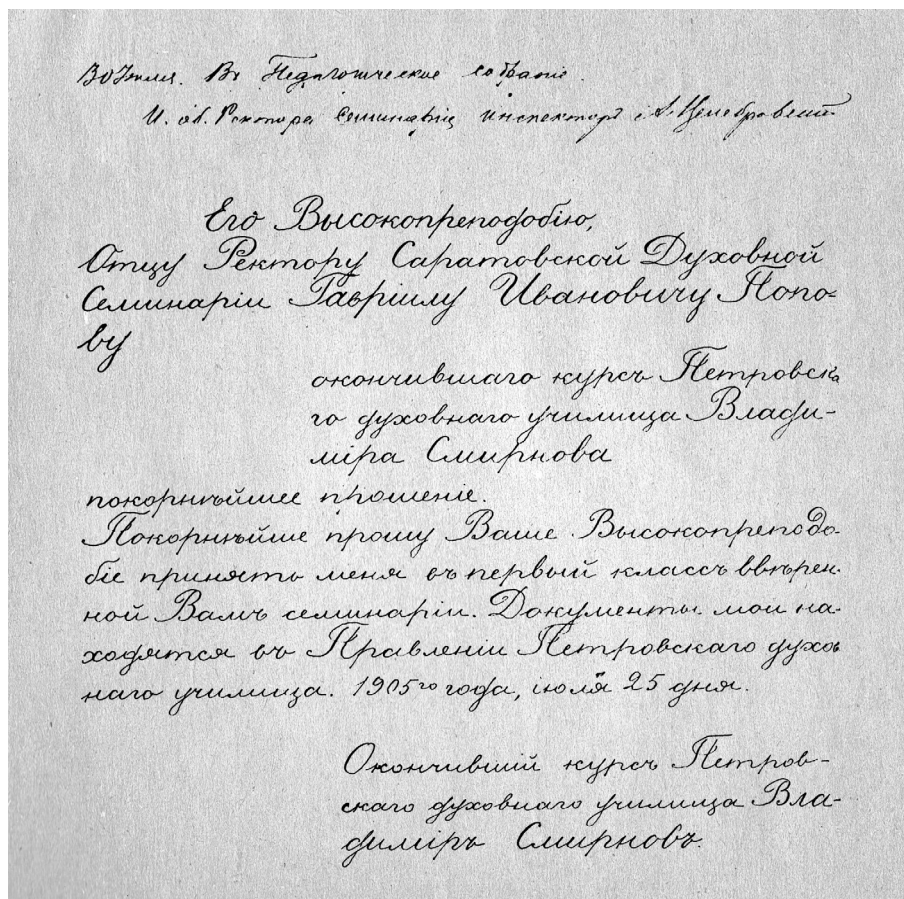 30 Июля. Въ Педагогическое собраніе.
И. об. Ректора Семинаріи инспекторъ А. Целебровскій
Его Высокопреподобію,
Отцу Ректору Саратовской Духовной
Семинаріи Гавріилу Ивановичу Попо-
ву
окончившаго курсъ Петровска
го духовнаго училища Влади-
міра Смирнова
покорнѣйшее прошеніе.
Покорнѣйше прошу Ваше Высокопреподо-
біе принять меня въ первый классъ ввѣрен-
ной Вамъ семинаріи. Документы мои на-
ходятся въ Правленіи Петровскаго духов
наго училища. 1905го года, іюля 25 дня.
Окончившій курсъ Петров-
скаго духовнаго училища Вла-
диміръ Смирновъ.